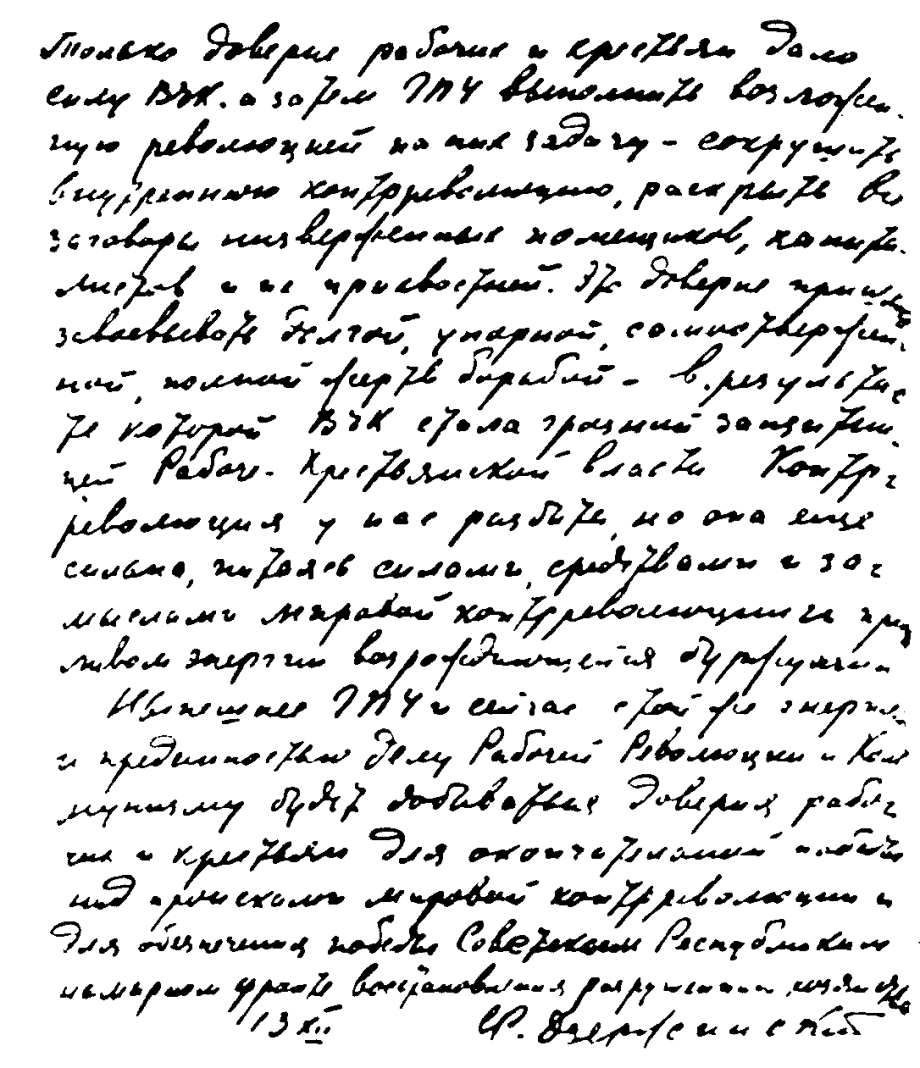 Только доверие рабочих и крестьян дало
силу ВЧК. а затем ГПУ выполнить возложен-
ную революцией на них задачу – сокрушить
внутреннюю контрреволюцию, раскрыть все
заговоры низверженных помещиков, капита-
листов и их прихвостней. Это доверие пришлось
завоевывать долгой, упорной, самоотвержен-
ной, полной жертв борьбой – в результа-
те которой ВЧК стала грозной защитни-
цей Рабоче-Крестьянской власти Контр-
революция у нас разбита, но она еще
сильна, питаясь силами, средствами и за-
мыслами мировой контрреволюции и при-
ливом энергии возрождающейся буржуазии
Нынешнее ГПУ и сейчас с той же энергией
и преданностью делу Рабочей Революции и Ком
мунизму будет добиваться доверия рабо-
чих и крестьян для окончательной победы
над происками мировой контрреволюции и
для обеспечения победы Советским Республикам
на мирном фронте восстановления разрушенного хозяйства
13 XII Ф. Дзержинский